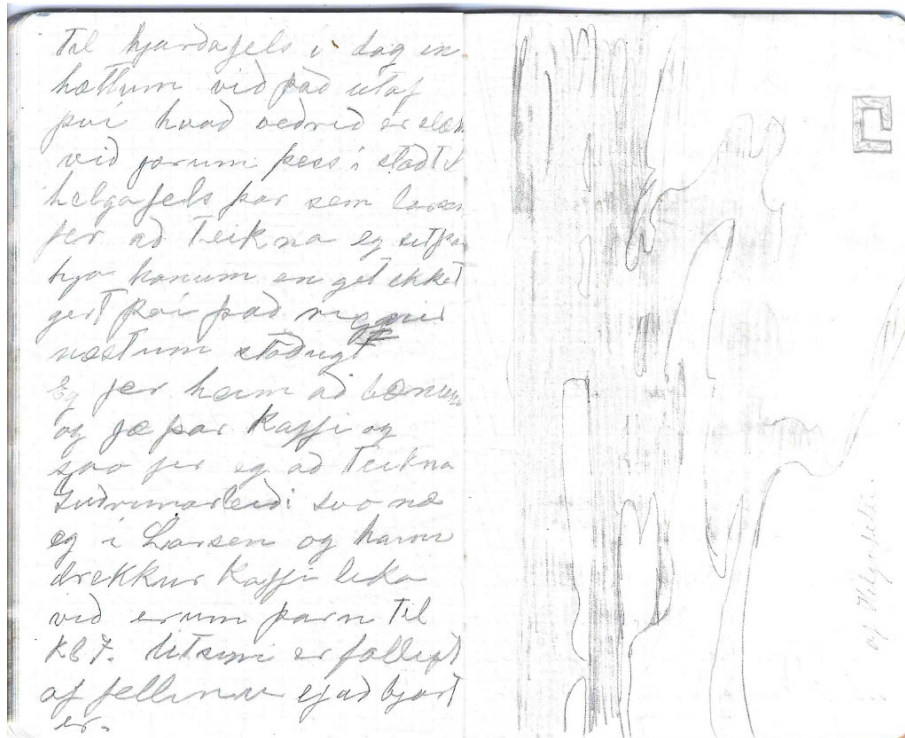 Til hjarðafels i dag en
hættum við það utaf
þvi hvað veðrið er slæm
við förum þess i stað til
helgafels þar sem larsen
fer að Teikna eg sit þar
hja honum en get ekket
gert þvi það rignir
næstum stöðugt
Eg fer heim að bænum
og fæ þar Kaffi og
svo fer eg að Teikna
Guðrunarleiði svo næ
eg i Larsen og hann
drekkur Kaffi lika
við erum þarn Til
Kl 7. Utsyni er fallegt
af fellinu ef að bjart
er.
af Helgafelli